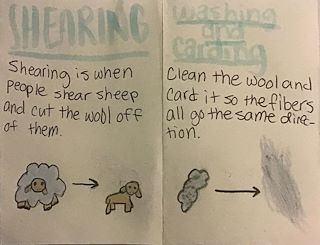 SHEARING
Shearing is when
people shear sheep
and cut the wool off
of them.
washing
and
carding
Clean the wool and
Card it so the fibers
all go the same direc-
tion.